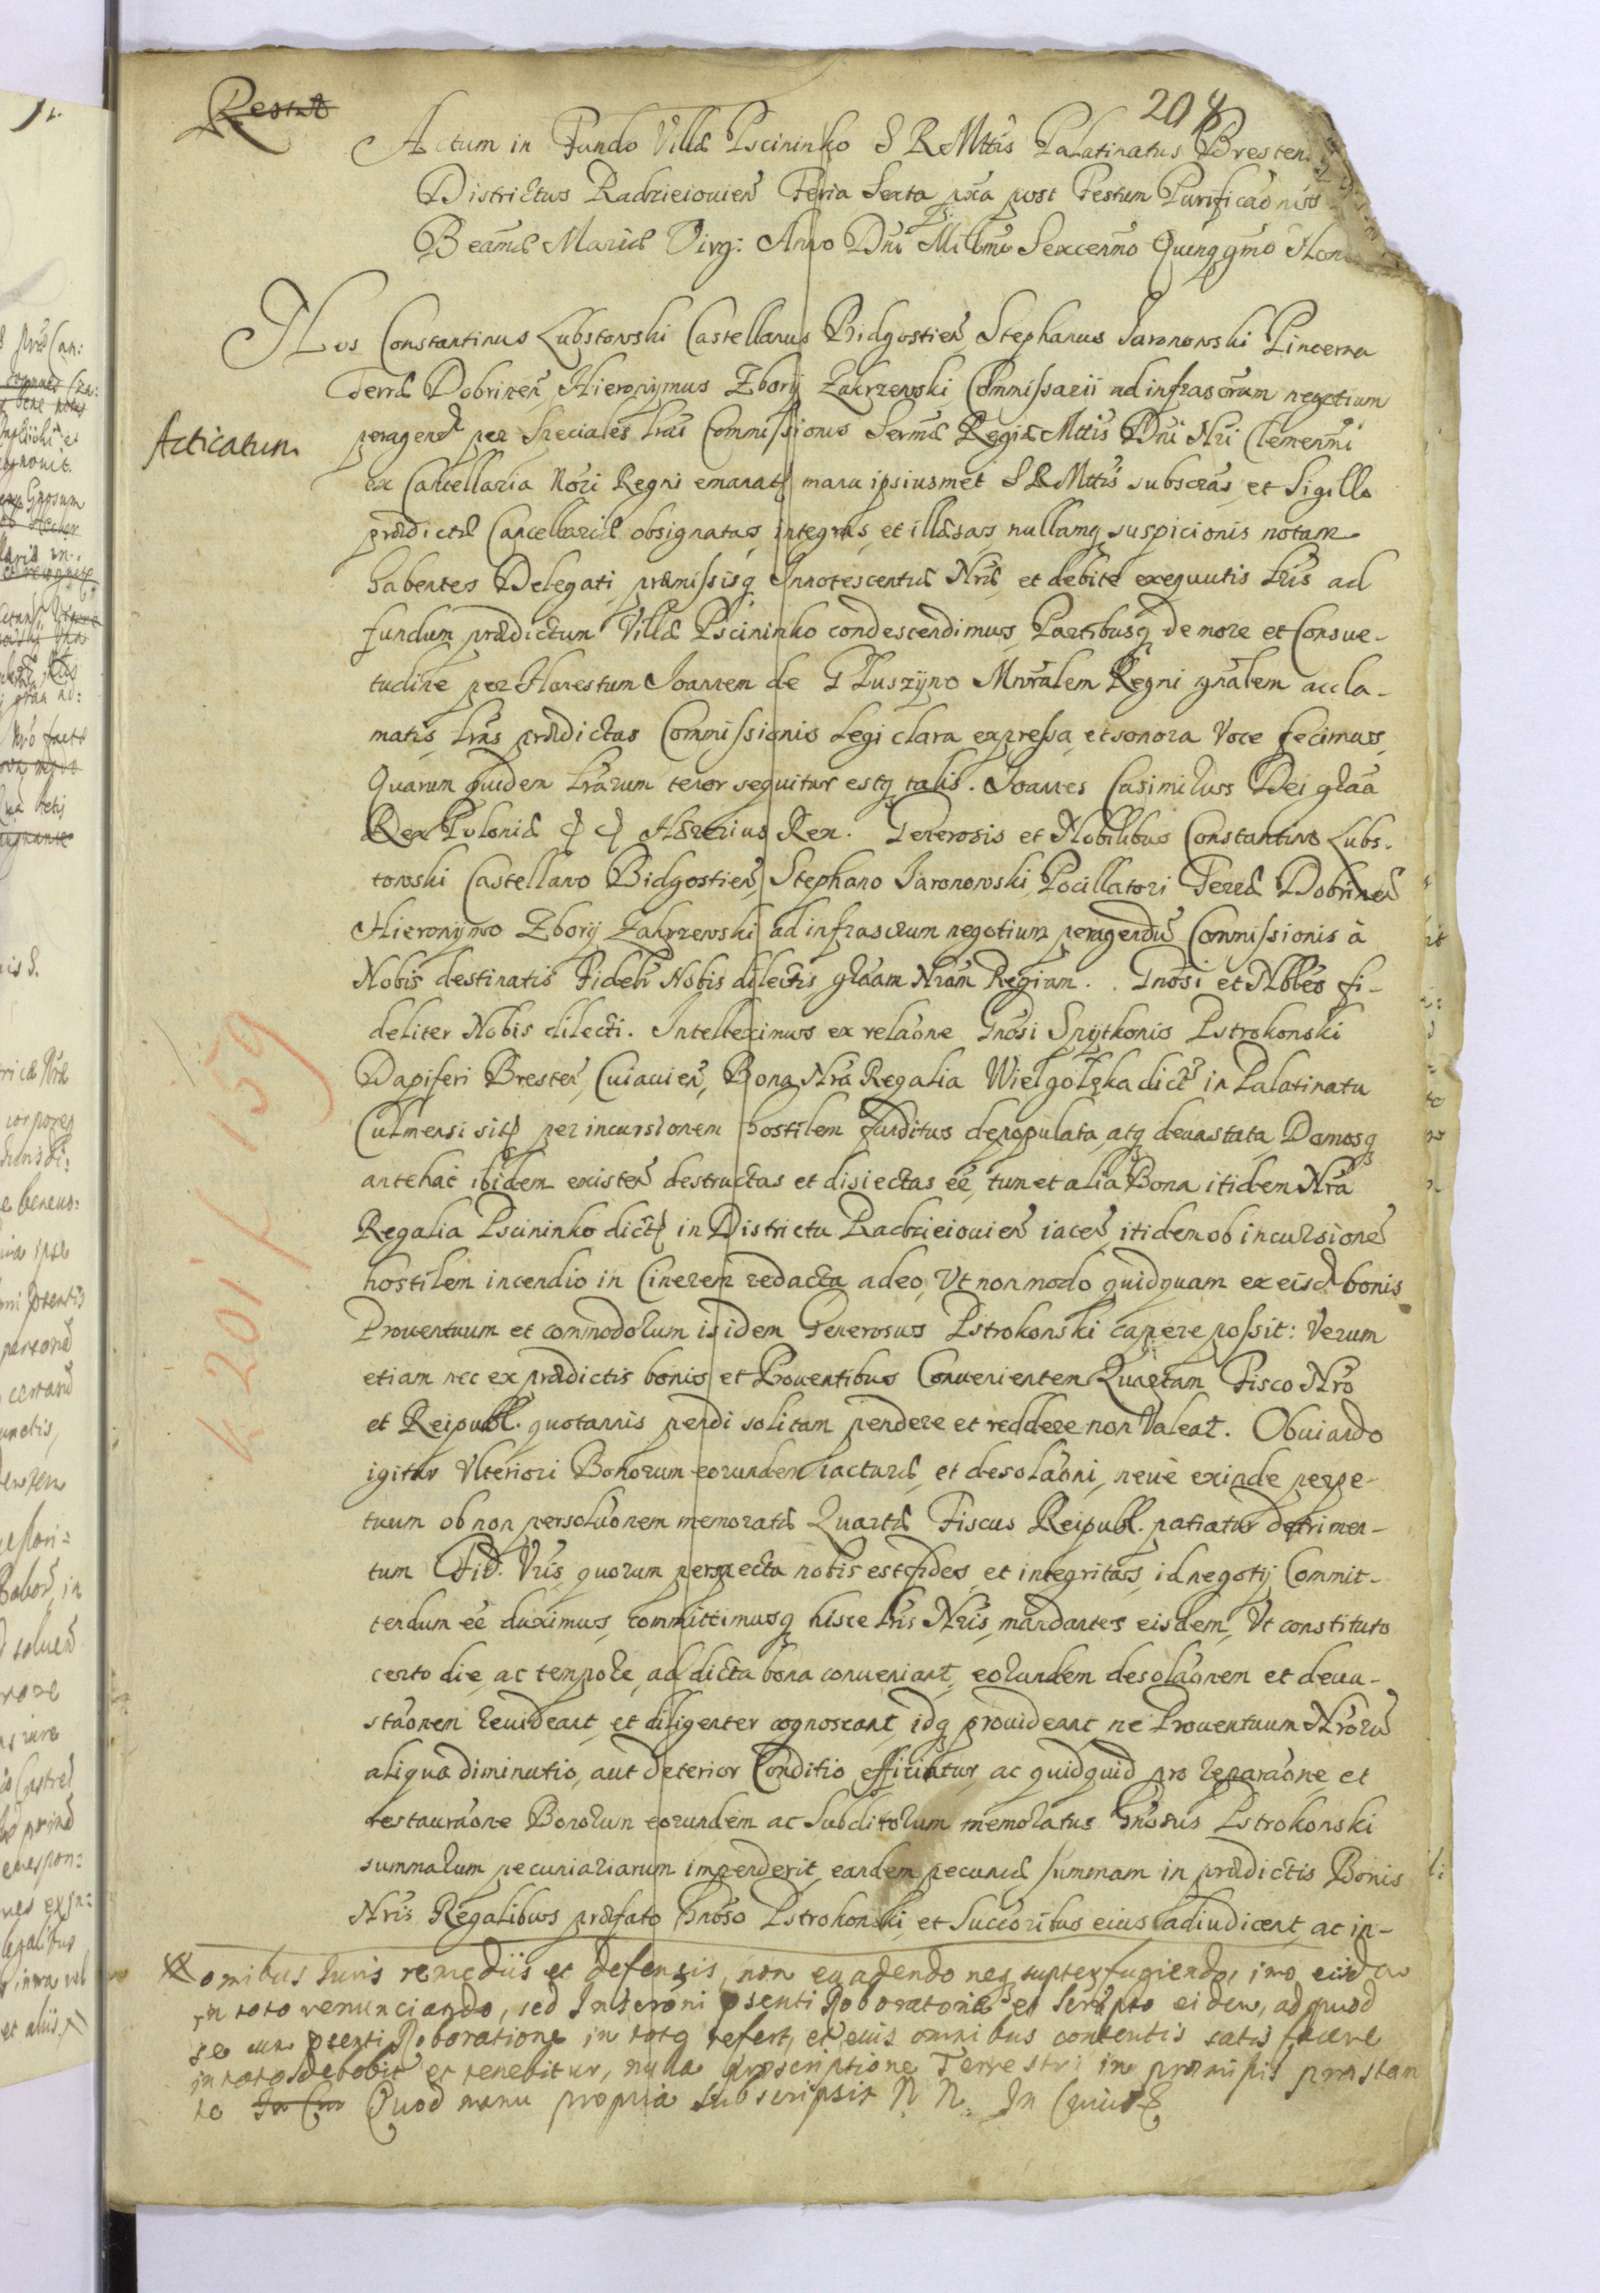 208
Actum in Fundo Villæ Pscininko S R Mttis Palatinatus Bresten
Districtus Radzieiouień Feria Sexta pxa post Festum Purificaōnis
Beatmæ Mariæ Virg: Anno Dni Millmo Sexcenmo Quinqgmo Non
Nos Constantinus Lubstowski Castellanus Bidgostień, Stephanus Jaronowski Pincerna
Terræ Dobrineń, Hieronymus Zbory Zakrzewski Commissarii ad infrascrum negotium
Acticatum
peragend per Speciales lras Commissionis Sermæ Regiæ Mttis Dni Nri Clemenmi
ex Cancellaria Nori Regni emanat manu ipsiusmet S R Mttis subscras, et Sigillo
prædictæ Cancellariæ obsignatas, integras, et illæsas nullamq suspicionis notam
habentes Delegati, præmissisq Innotescentiis Nris et debite exequutis lris ad
fundum prædictum Villæ Pscininko condescendimus, Partibusq de more et Consue-
tudine per Honestum Joannem de Głuszyno Mnralem Regni gnalem accla-
matis, lras prædictas Commissionis legi clara expressa, et sonora Voce fecimus,
Quarum quidem lrarum tenor sequitur estq talis. Joannes Casimirus Dei graa
Rex Poloniæ Rex. Generosis et Nobilibus Constantino Lubs-
towski Castellano Bidgostień, Stephano Jaronowski Pocillatori Terræ Dobrineń
Hieronymo Zbory Zakrzewski ad infrascrum negotium peragendū Commissionis à
Nobis destinatis Fideli Nobis dilectis graam Nram Regiam. Gnosi et Nbles fi-
deliter Nobis dilecti. Intelleximus ex relaōne Gnosi Spytkonis Pstrokonski
Dapiferi Bresteń, Cuiauień, Bona Nra Regalia Wielgołęka dict in Palatinatu
Culmensi sit per incursionem hostilem funditus depopulata, atq deuastata, Domosq
antehac ibidem existeń destructas et disiectas eē, tum et alia Bona itidem Nra
Regalia Pscininko dict in Districtu Radzieiouień iaceń, itidem ob incursionē
hostilem incendio in Cinerem redacta adeo, Ut non modo quidquam ex eisd bonis
Prouentuum et commodorum is idem Generosus Pstrokonski capere possit: Verum
etiam nec ex prædictis bonis et Prouentibus Conuenientem Quartam Fisco Nro
et Reipubl. quotannis pendi solitam pendere et reddere non Valeat. Obuiando
igitur Ulteriori Bonorum eorundem iacturæ, et desolaōni, neue exinde perpe-
tuum ob non persoluōnem memoratæ Quartæ Fiscus Reipubl. patiatur detrimen-
tum Fid. Vris, quorum perspecta nobis est fides, et integritas, id negotij Commit-
tendum eē duximus, committimusq hisce lris Nris, mandantes eisdem, Ut constituto
certo die, ac tempore, ad dicta bona conueniant, eorundem desolaōnem et deua-
staōnem reuideant, et diligenter cognoscant, idq prouideant ne Prouentuum Nrorū
aliqua diminutio, aut deterior Conditio efficiatur, ac quidquid pro reparaōne et
restauraōne Bonorum eorundem ac Subditorum memoratus Gnosus Pstrokonski
summarum pecuniariarum impenderit, eandem pecuniæ summam in prædictis Bonis
Nris Regalibus præfato Gnoso Pstrokonski, et Succoribus eius adiudicent, ac in-
omnibus Iuris remediis et defensis, non euadendo neq supterfugiendo, imo
in toto renunciando, sed Inscroni psenti Roboratoriæ et Scripto eidem, ad quod
se cum psenti Roboratione in toto refert, et eius omnibus contentis satis facere
in toto debebit et tenebitur, nulla proscriptione Terrestri in præmissis prestan
to Quod manu propria subscripsit N. N. In Cuius
K 201 f 159